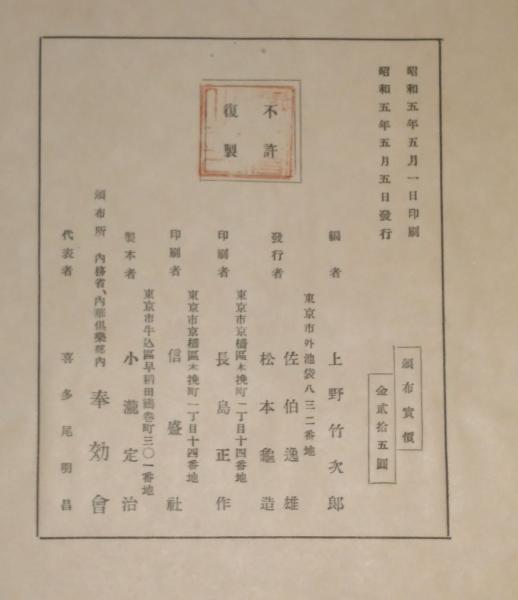 昭和五年五月一日印刷
昭和五年五月五日發行
頒布實價
金貳拾五圓
不許
復製
編者 上野竹次郎
東京市外池袋八三二番地
發行者 佐伯逸雄
松本龜造
東京市京橋區木挽町一丁目十四番地
印刷者 長島正作
東京市京橋區木挽町一丁目十四番地
印刷者 信盛社
東京市牛込區早稻田鶴卷町三〇一番地
製本者 小瀧定治
頒布所 內務省、內華俱樂部內 奉効會
代表者 喜多尾明昌